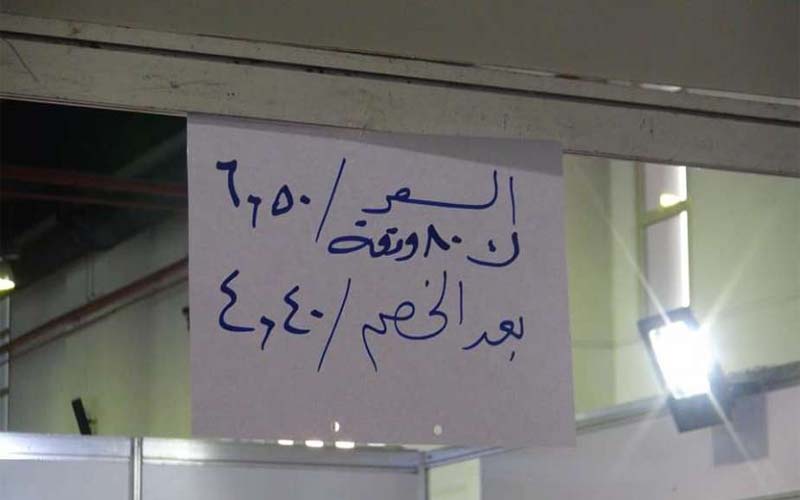 السعر / ٦,٥٠
ل ٨٠ ورقة
بعد الخصم / ٤,٤٠